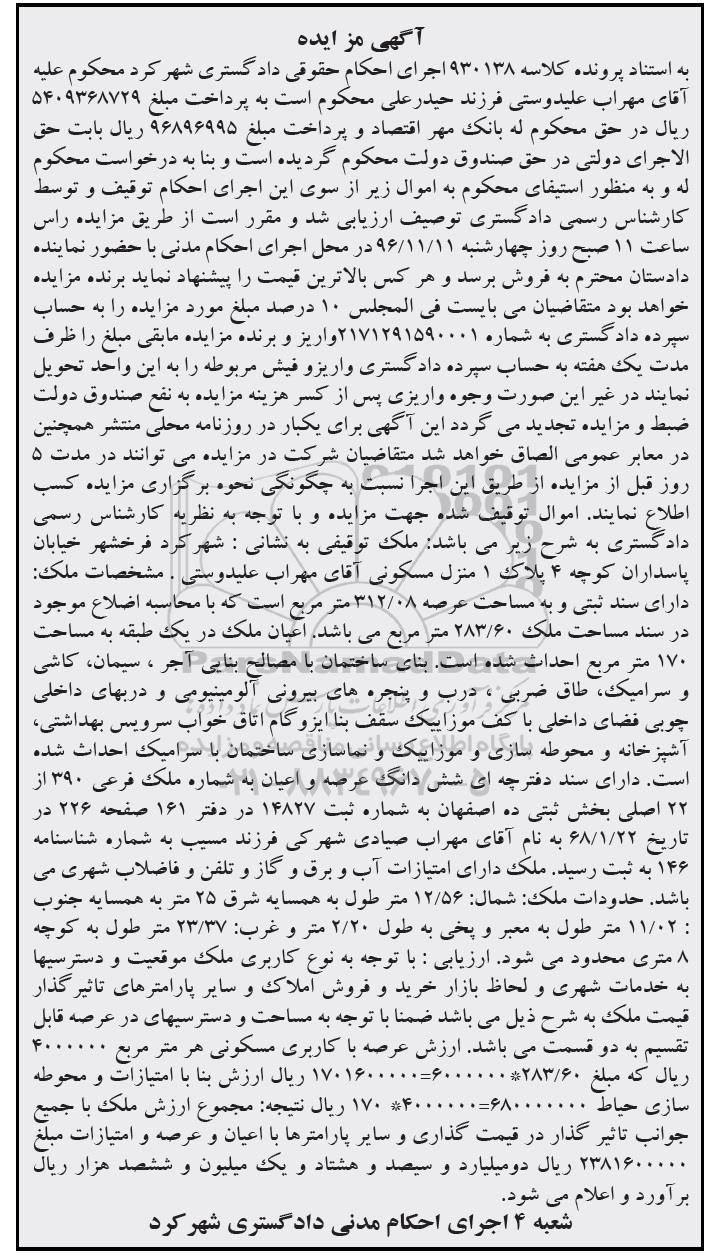 آگهی مز ایده
به استناد پرونده کلاسه ۹۳۰۱۳۸ اجرای احکام حقوقی دادگستری شهرکرد محکوم علیه
آقای مهراب علیدوستی فرزند حیدرعلی محکوم است به پرداخت مبلغ ۵۴۰۹۳۶۸۷۲۹
ریال در حق محکوم له بانک مهر اقتصاد و پرداخت مبلغ ۹۶۸۹۶۹۹۵ ریال بابت حق
الاجرای دولتی در حق صندوق دولت محکوم گردیده است و بنا به درخواست محکوم
له و به منظور استیفای محکوم به اموال زیر از سوی این اجرای احکام توقیف و توسط
کارشناس رسمی دادگستری توصیف ارزیابی شد و مقرر است از طریق مزایده راس
ساعت ۱۱ صبح روز چهارشنبه ۹۶/۱۱/۱۱ در محل اجرای احکام مدنی با حضور نماینده
دادستان محترم به فروش برسد و هر کس بالاترین قیمت را پیشنهاد نماید برنده مزایده
خواهد بود متقاضیان می بایست فی المجلس ۱۰ درصد مبلغ مورد مزایده را به حساب
سپرده دادگستری به شماره ۲۱۷۱۲۹۱۵۹۰۰۰۱واریز و برنده مزایده مابقی مبلغ را ظرف
مدت یک هفته به حساب سپرده دادگستری واریزو فیش مربوطه را به این واحد تحویل
نمایند در غیر این صورت وجوه واریزی پس از کسر هزینه مزایده به نفع صندوق دولت
ضبط و مزایده تجدید می گردد این آگهی برای یکبار در روزنامه محلی منتشر همچنین
در معابر عمومی الصاق خواهد شد متقاضیان شرکت در مزایده می توانند در مدت ۵
روز قبل از مزایده از طریق این اجرا نسبت به چگونگی نحوه برگزاری مزایده کسب
اطلاع نمایند. اموال توقیف شده جهت مزایده و با توجه به نظریه کارشناس رسمی
دادگستری به شرح زیر می باشد: ملک توقیفی به نشانی : شهرکرد فرخشهر خیابان
پاسداران کوچه ۴ پلاک ۱ منزل مسکونی آقای مهراب علیدوستی . مشخصات ملک:
دارای سند ثبتی و به مساحت عرصه ۳۱۲/۰۸ متر مربع است که با محاسبه اضلاع موجود
در سند مساحت ملک ۲۸۳/۶۰ متر مربع می باشد. اعیان ملک در یک طبقه به مساحت
۱۷۰ متر مربع احداث شده است. بنای ساختمان با مصالح بنایی آجر ، سیمان، کاشی
و سرامیک، طاق ضربی ، درب و پنجره های بیرونی آلومینیومی و دربهای داخلی
چوبی فضای داخلی با کف موزاییک سقف بنا ایزوگام اتاق خواب سرویس بهداشتی،
آشپزخانه و محوطه سازی و موزاییک و نماسازی ساختمان با سرامیک احداث شده
است. دارای سند دفترچه ای شش دانگ عرصه و اعیان به شماره ملک فرعی ۳۹۰ از
۲۲ اصلی بخش ثبتی ده اصفهان به شماره ثبت ۱۴۸۲۷ در دفتر ۱۶۱ صفحه ۲۲۶ در
تاریخ ۶۸/۱/۲۲ به نام آقای مهراب صیادی شهرکی فرزند مسیب به شماره شناسنامه
۱۴۶ به ثبت رسید. ملک دارای امتیازات آب و برق و گاز و تلفن و فاضلاب شهری می
باشد. حدودات ملک: شمال: ۱۲/۵۶ متر طول به همسایه شرق ۲۵ متر به همسایه جنوب
: ۱۱/۰۲ متر طول به معبر و پخی به طول ۲/۲۰ متر و غرب: ۲۳/۳۷ متر طول به کوچه
۸ متری محدود می شود. ارزیابی : با توجه به نوع کاربری ملک موقعیت و دسترسیها
به خدمات شهری و لحاظ بازار خرید و فروش املاک و سایر پارامترهای تاثیرگذار
قیمت ملک به شرح ذیل می باشد ضمنا با توجه به مساحت و دسترسیهای در عرصه قابل
تقسیم به دو قسمت می باشد. ارزش عرصه با کاربری مسکونی هر متر مربع ۴۰۰۰۰۰۰
ریال که مبلغ ۲۸۳/۶۰*۶۰۰۰۰۰۰=۱۷۰۱۶۰۰۰۰۰ ریال ارزش بنا با امتیازات و محوطه
سازی حیاط ۶۸۰۰۰۰۰۰۰=۴۰۰۰۰۰۰* ۱۷۰ ریال نتیجه: مجموع ارزش ملک با جمیع
جوانب تاثیر گذار در قیمت گذاری و سایر پارامترها با اعیان و عرصه و امتیازات مبلغ
۲۳۸۱۶۰۰۰۰۰ ریال دومیلیارد و سیصد و هشتاد و یک میلیون و ششصد هزار ریال
برآورد و اعلام می شود.
شعبه ۴ اجرای احکام مدنی دادگستری شهرکرد
ParsNamadData
پایگاه اطلاع رسانی مناقصه و مزایده
۰۲۱-۸۸۳۴۹۶۷۰-۵